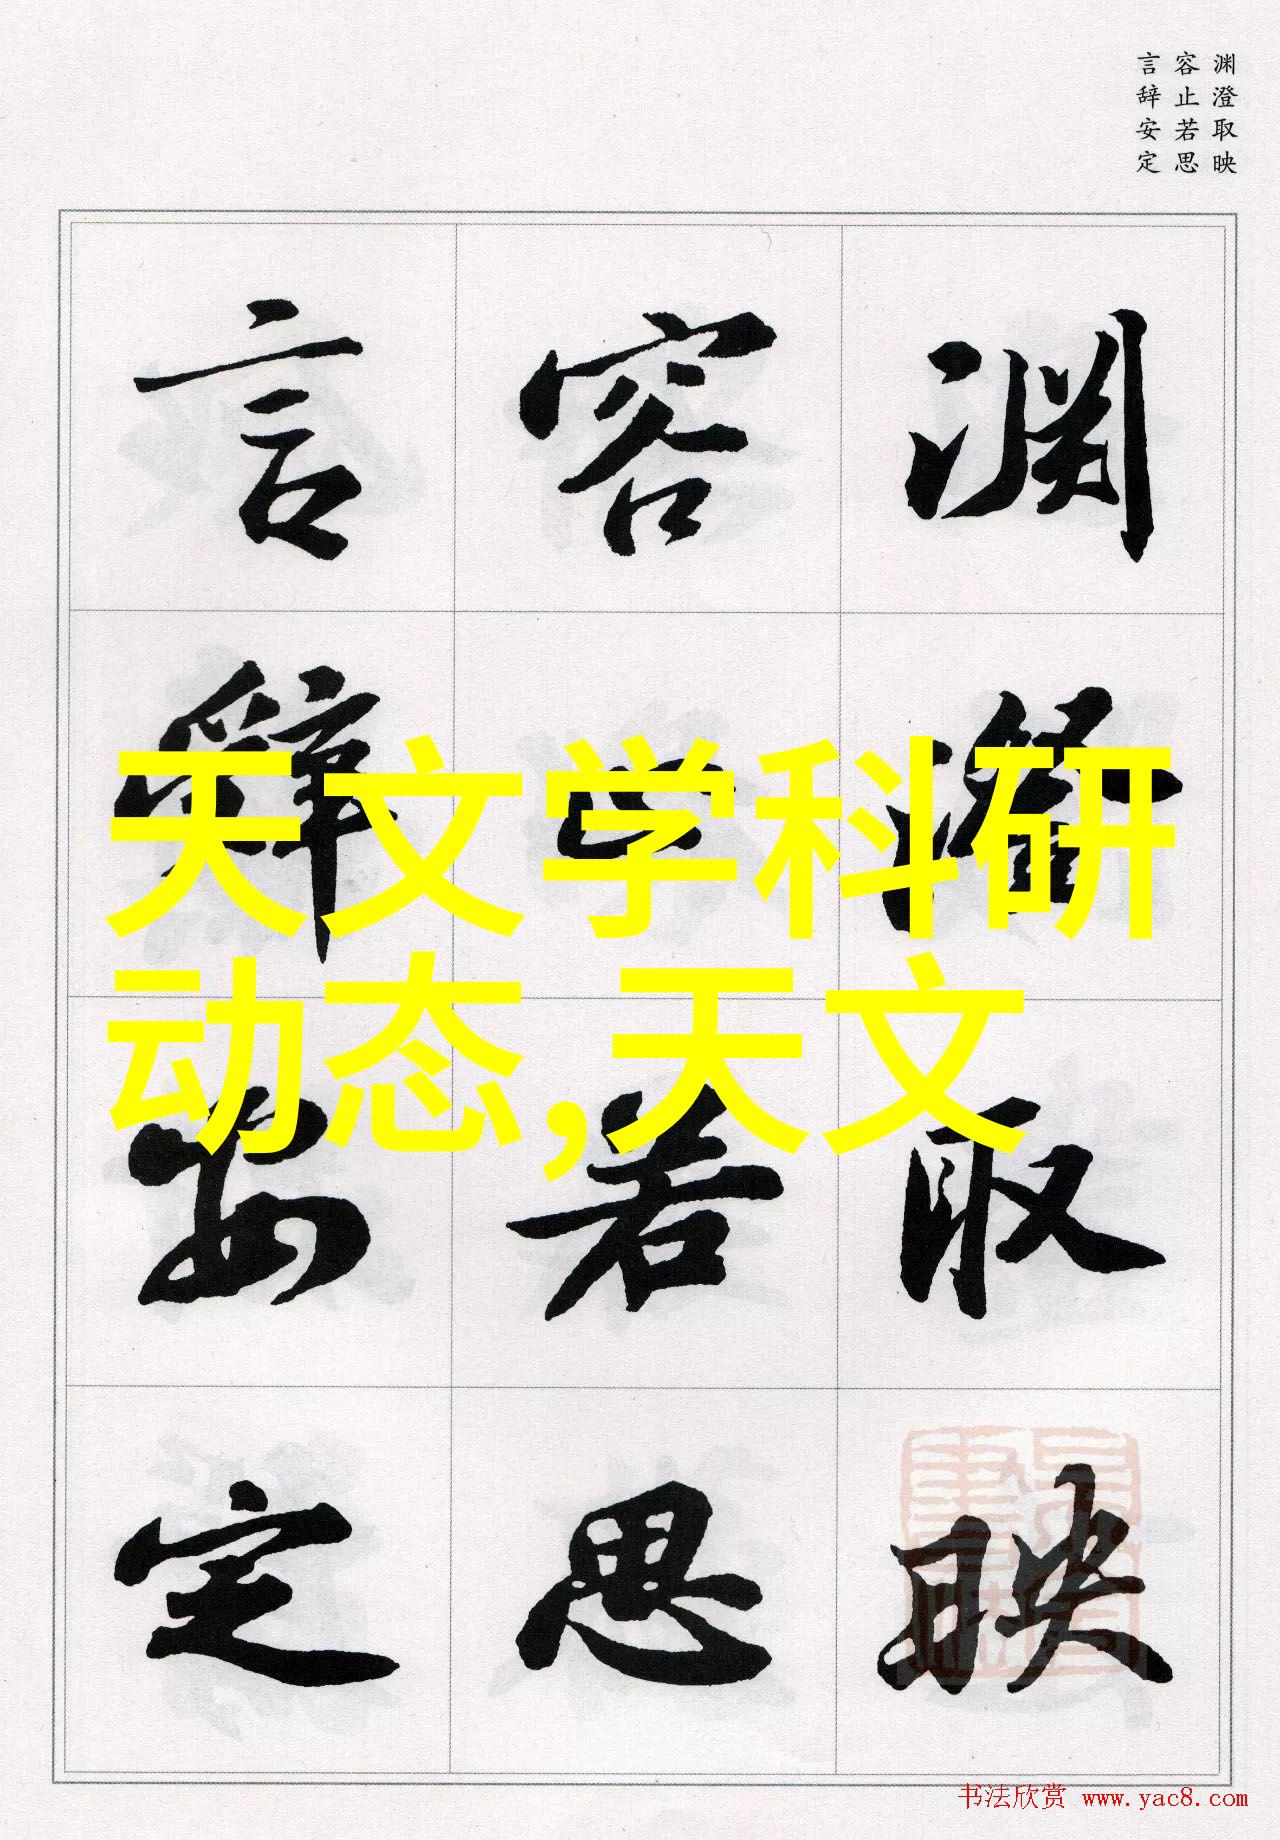 渊澄取映
容止若思
言辞安定
渊澄取映
容止若思
言辞安定
天文学科研
动态,天文
书法欣赏 www.yac8.com